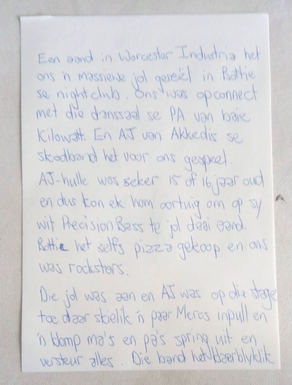 Een aand in Worcester Industria het
ons 'n massiewe jol gereël in Bottie
se nightclub. Ons was opconnect
met die danssaal se PA van baie
Kilowatt. En AJ van Akkedis se
skoolband het voor ons gespeel.
AJ-hulle was seker 15 of 16 jaar oud
en dus kon ek hom oortuig om op sy
wit Precision Bass te jol daai aand.
Bottie het selfs pizza gekoop en ons
was rockstars.
Die jol was aan en AJ was op die stage
toe daar skielik 'n paar Mercs inpull en
'n klomp ma's en pa's spring uit en
versteur alles. Die band het blyklik